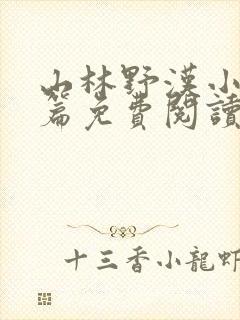 山林野漢小
篇免費閱讀
十三香小龍蝦